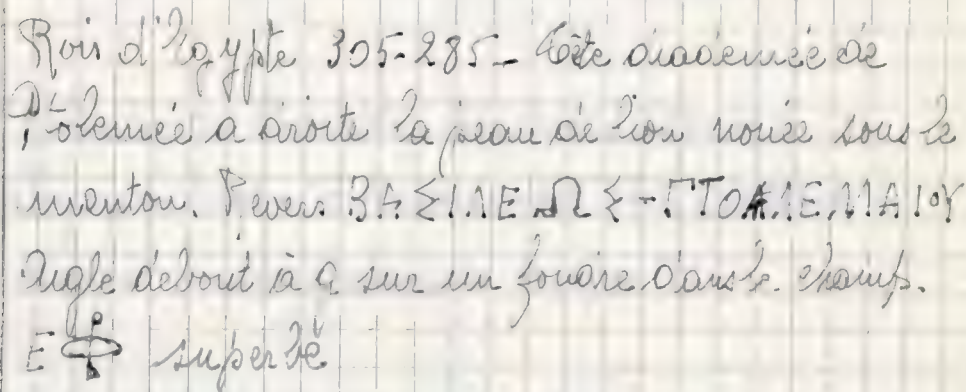 Rois d'Egypte 305-285 - Tête diadémée de
Ptolemée a droite la peau de lion nouée sous le
menton. Revers ΒΑΣΙΛΕΩΣ - ΠΤΟΛΕΜΑΙΟΥ
Aigle debout à g sur un foudre dans le champ.
E superbe